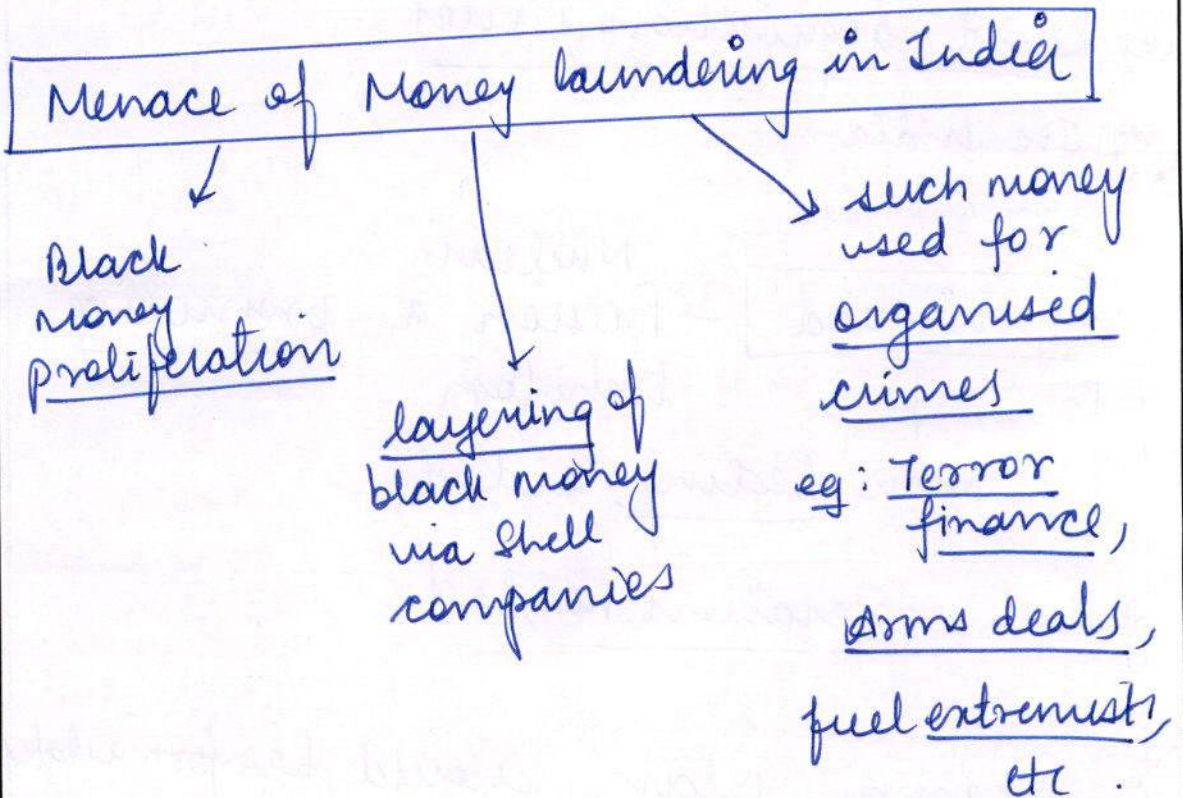 Menace of Money laundering in India
Black
money
proliferation.
layering of
black money
via Shell
companies
such money
used for
organised
crimes
eg: Terror
finance,
Arms deals,
fuel extremists,
etc.